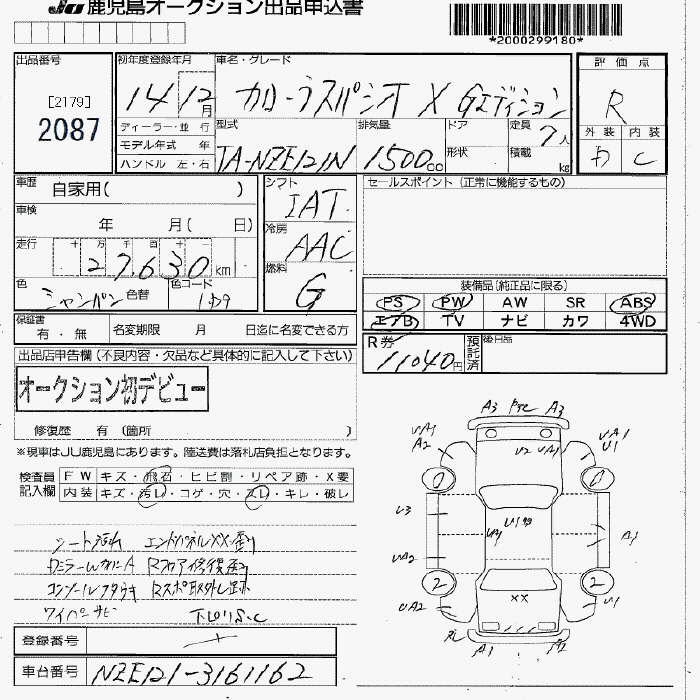 JU 鹿児島オークション出品申込書
*2000299180*
出品番号
[2179]
2087
初年度登録年月
14 / 12 月
車名・グレード
カローラスパシオ X Gエディション
評価点
R
外装 内装
C
ディーラー・並行
モデル年式 年
ハンドル 左・右
型式
TA-NZE121N
排気量
1500 cc
ドア
形状
定員
7人
積載 kg
車歴
自家用( )
車検
年 月( 日)
走行
十 万 千 百 十 一
27,630 km
色
シャンパン
色替
色コード
シフト
IAT
冷房
AAC
燃料
G
セールスポイント(正常に機能するもの)
装備品(純正品に限る)
PS PW AW SR ABS
エアB TV ナビ カワ 4WD
保証書
有・無
名変期限 月 日迄に名変できる方
R券
11040円
預託済
後日品
出品店申告欄(不良内容・欠品など具体的に記入して下さい)
オークション初デビュー
修復歴 有(箇所 )
※現車はJU鹿児島にあります。陸送費は落札店負担となります。
検査員記入欄
FW キズ・飛石・ヒビ割・リペア跡・X要
内装 キズ・汚れ・コゲ・穴・スレ・キレ・破レ
シート汚れ エンドパネルXX・割
RミラーウカニA Rフロア修復有
コンソールフタウキ Rスポ取外し跡
ワイパーサビ 下回りS.C
A3 A3
UA1
A2
U2 UA1
UA1
U1
U3
UA2
A1
2 2
UA2
XX
U1
A1
登録番号
車台番号
NZE121-3161162